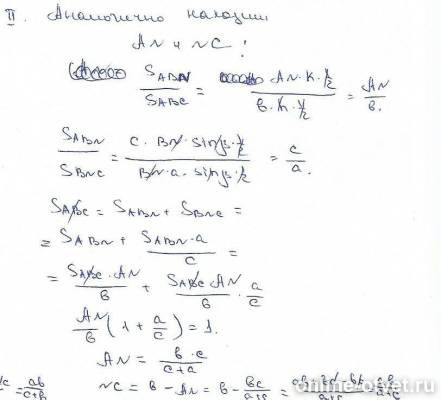 II. Аналогично находим
AN и NC:
S_ABN / S_ABC = AN·K·1/2 / в·K·1/2 = AN / в.
S_ABN / S_BNC = c·BN·sinβ·1/2 / BN·a·sinβ·1/2 = c / a.
S_ABC = S_ABN + S_BNC =
= S_ABN + S_ABN·a / c =
= S_ABC·AN / в + S_ABC·AN / в · a / c
AN / в (1 + a / c) = 1.
AN = в·c / c+a
NC = в - AN = в - вc / a+c =
= ab / c+в
online-otvet.ru